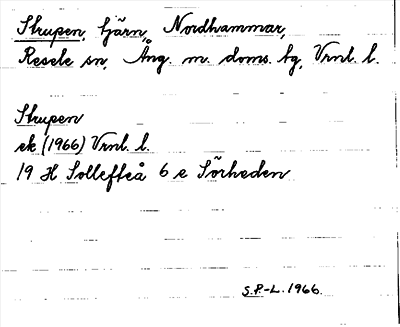 Strupen, tjärn, Nordhammar,
Resele sn, Ång. m. doms. tg, Vrnl. l.
Strupen
ek (1966) Vrnl. l.
19 H Sollefteå 6 e Sörheden
S.P.-L. 1966.